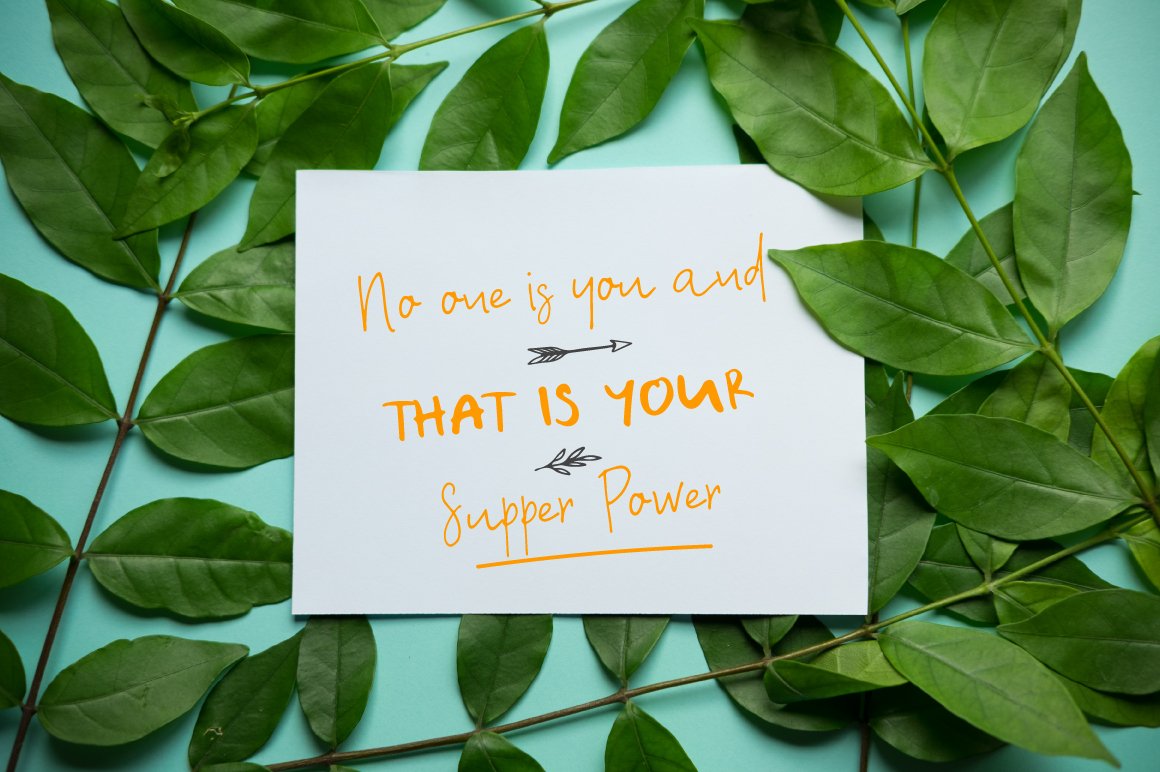 No one is you and
THAT IS YOUR
Supper Power